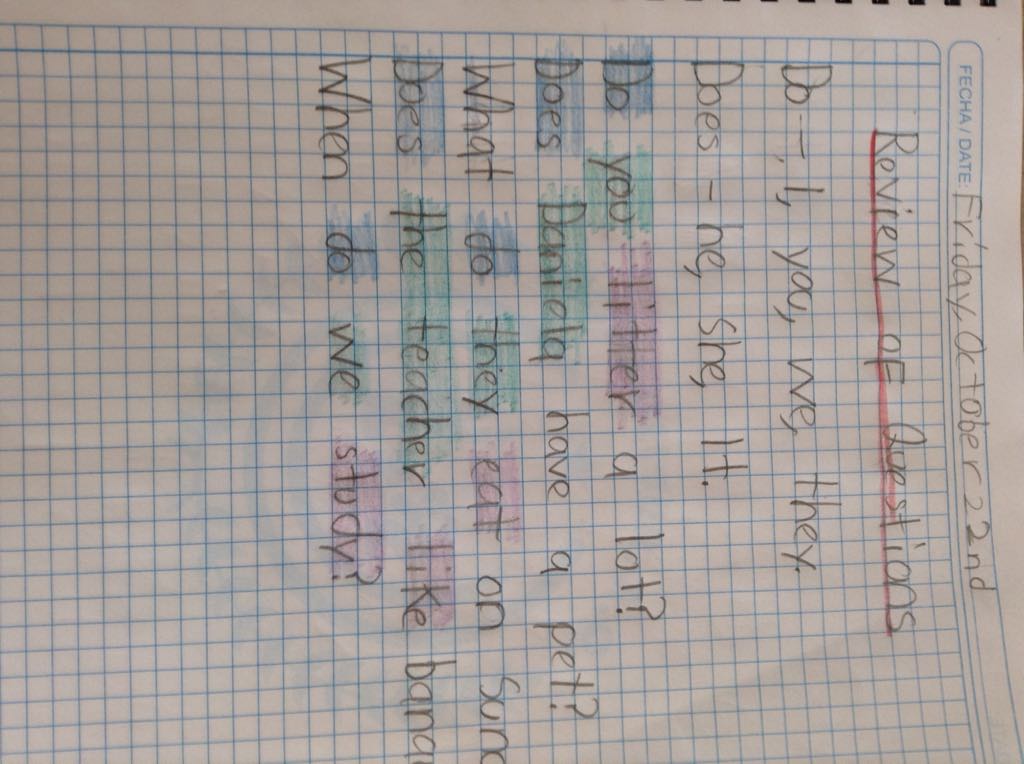 FECHA / DATE: Friday, October 22nd
Review of Questions
Do - I, you, we, they.
Does - he, she, It.
Do you litter a lot?
Does Daniela have a pet?
What do they eat on Sund
Does the teacher like bana
When do we study?